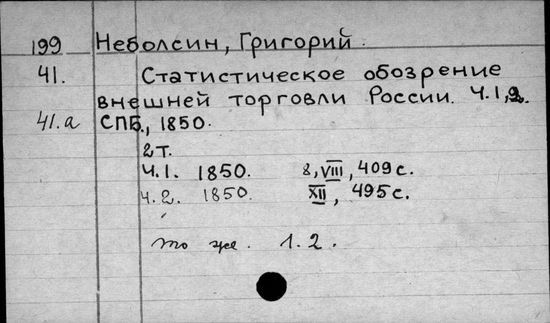 199 Неболсин, Григорий.
41. Статистическое обозрение
внешней торговли России. Ч.1,2.
41.а СПБ., 1850.
2т.
Ч.1. 1850. 8, VIII, 409с.
Ч.2. 1850. XII, 495с.
то же. 1.2.